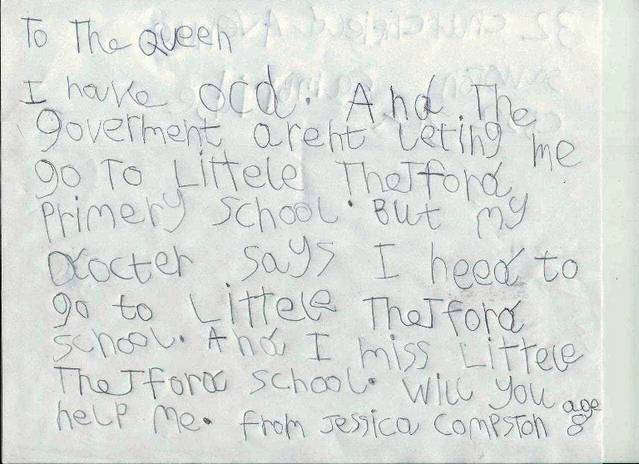 To The Queen
I have ocd. And The
goverment arent leting me
go To Littele Thetford
Primery School. But my
Docter says I need to
go to Littele Thetford
school. And I miss Littele
Thetford school. Will you
help me. from Jessica Compston age 8